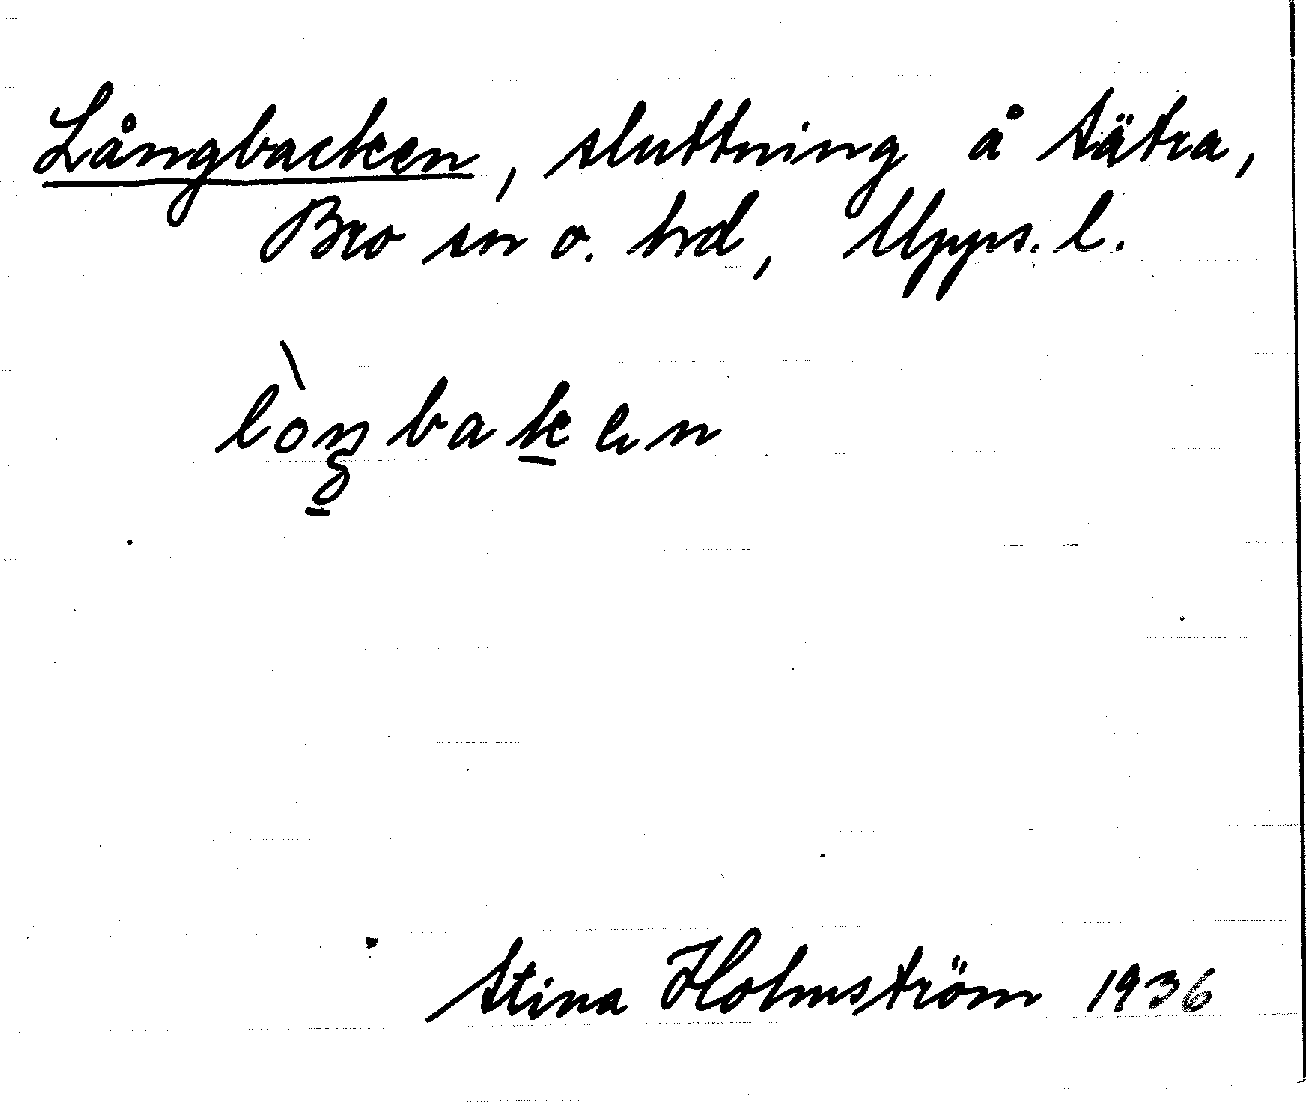 Långbacken, sluttning å Sätra,
Bro sn o. hd, Upps. l.
lòŋbaken
Stina Holmström 1936